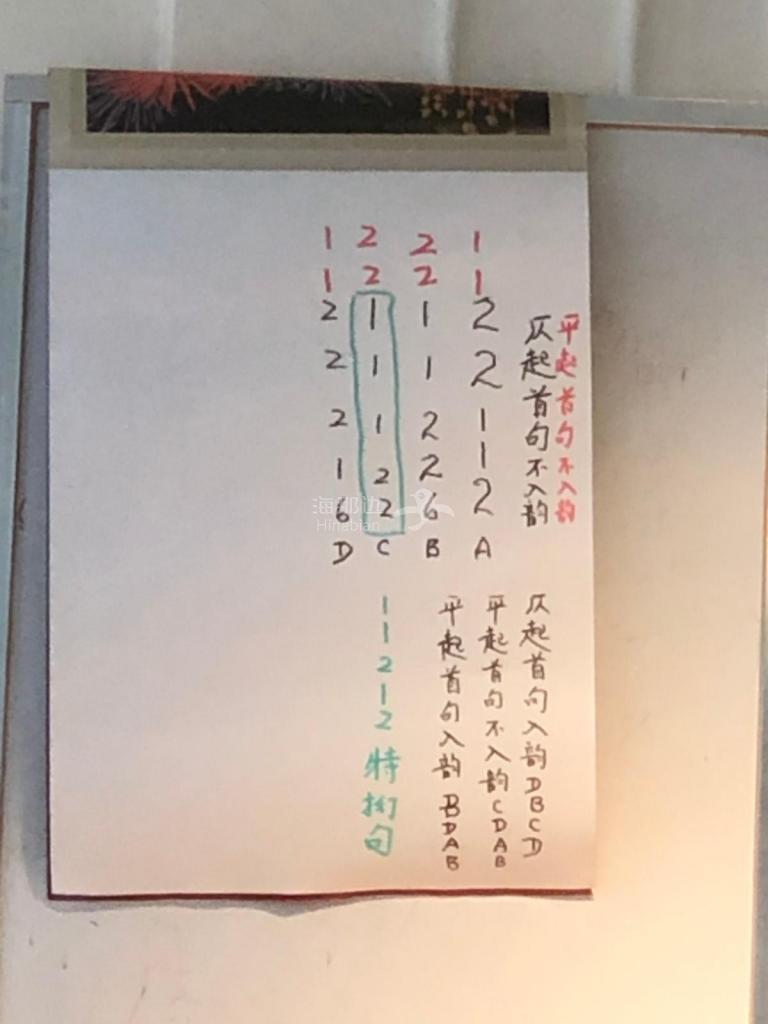 平起首句不入韵
仄起首句不入韵
1122112 A
2211226 B
2211122 C
1122216 D
仄起首句入韵DBCD
平起首句不入韵CDAB
平起首句入韵BDAB
11212特拗句
海那边
Hinabian